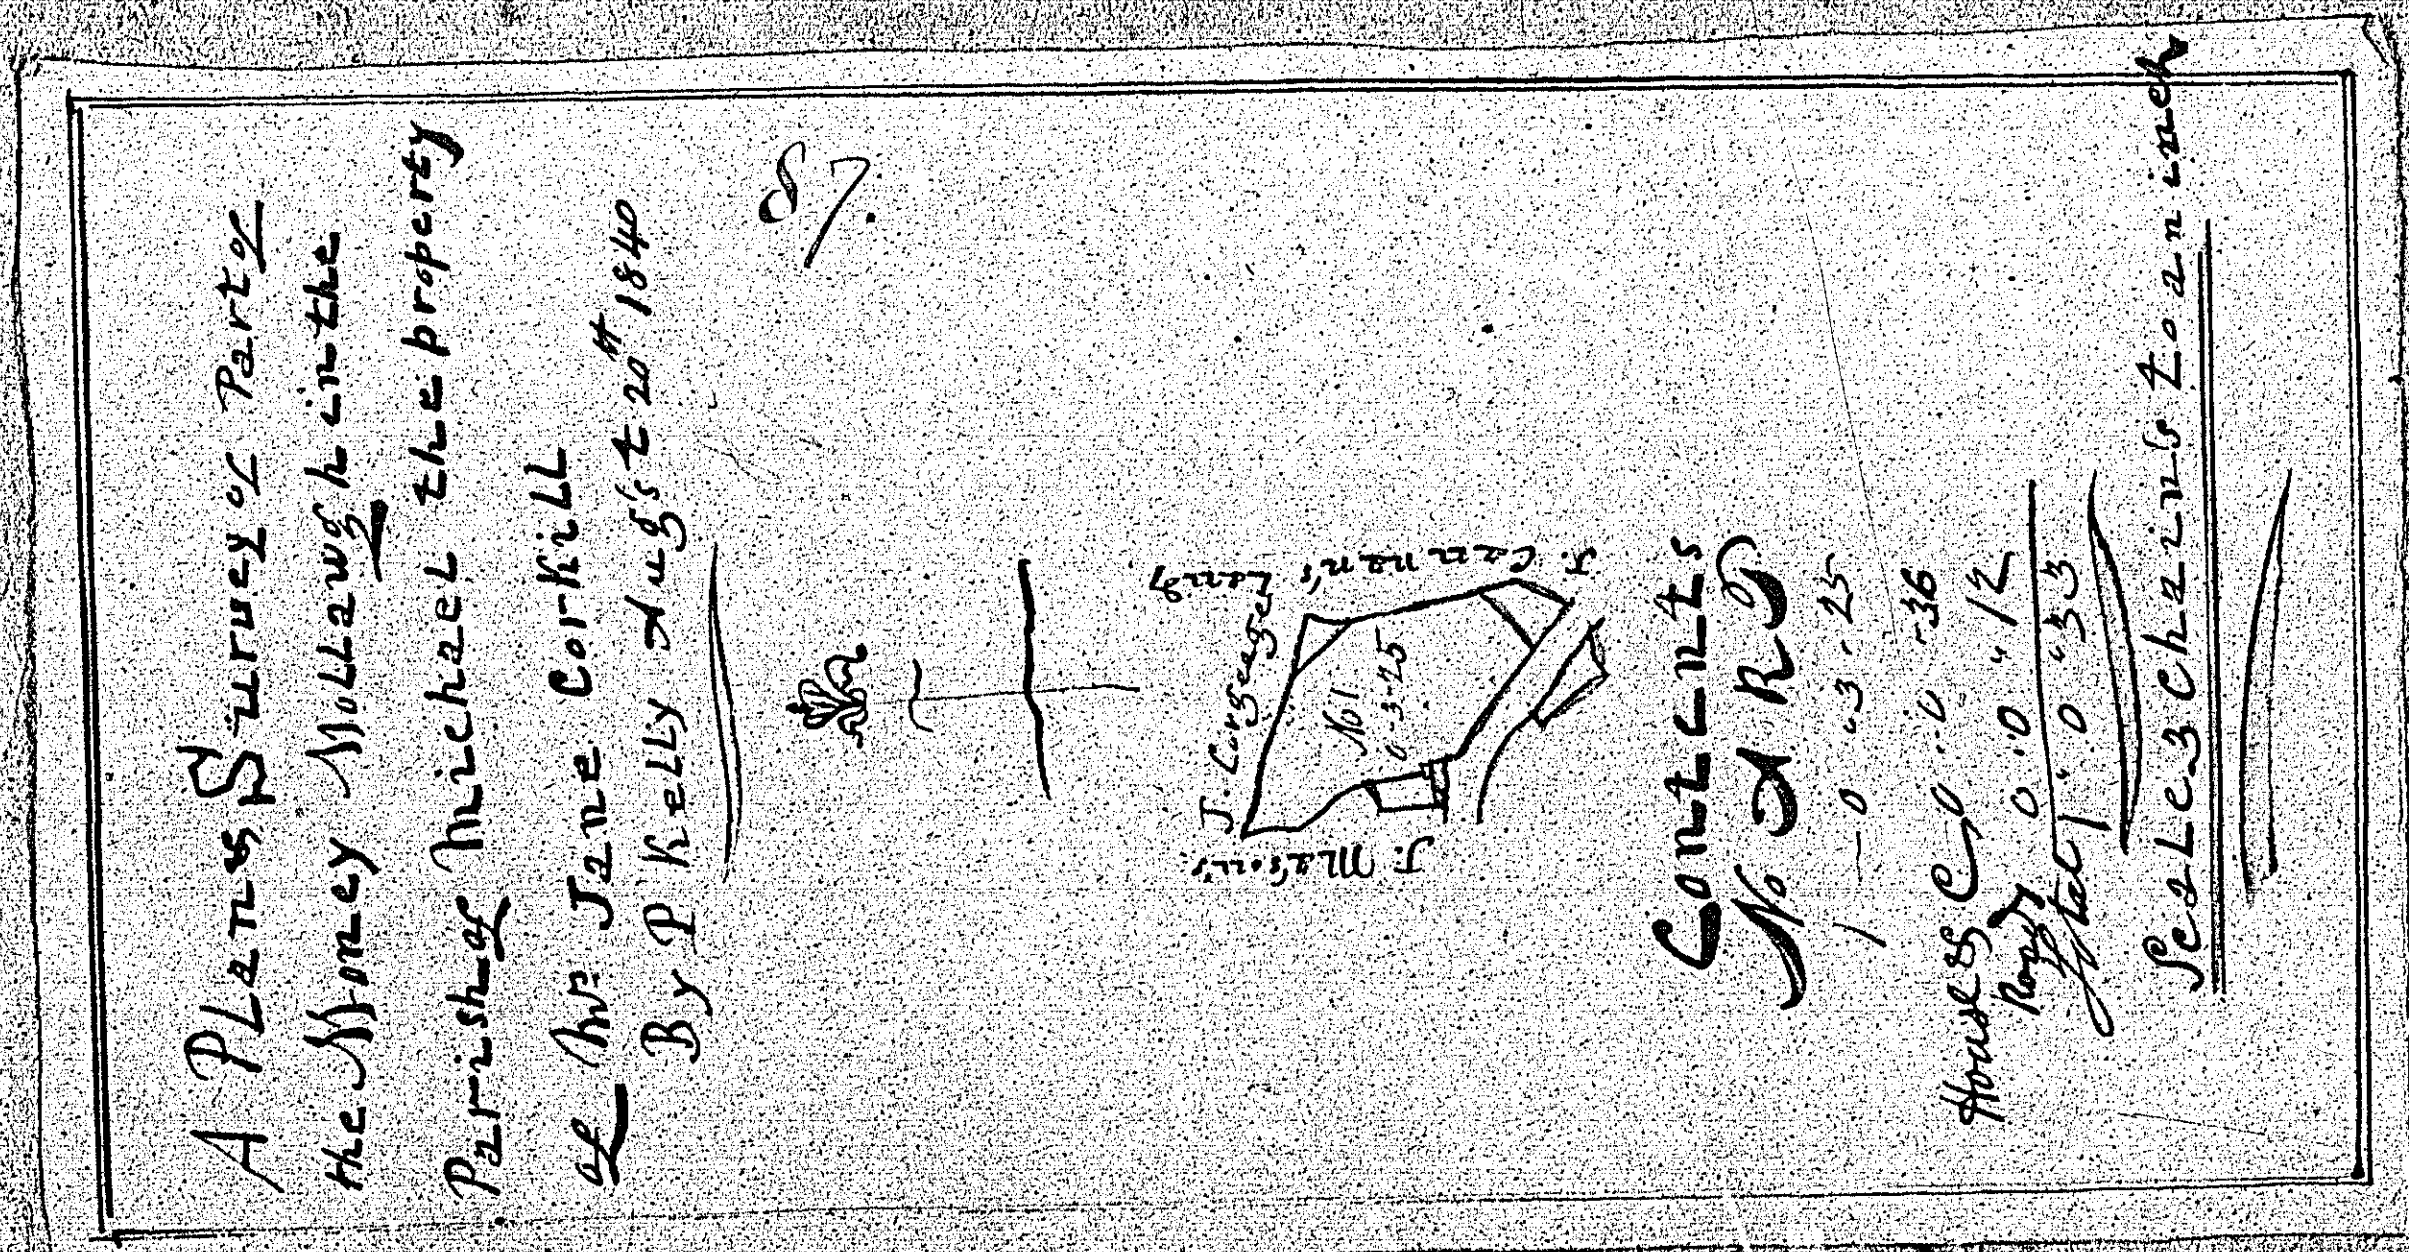 A Plan & Survey of Part of
the Abney Mollawgh in the
Parish of Michael the property
of Mrs. Jane Corkill
By P Kelly Aug'st 20th 1840
87.
J. Corgeage
J. Cannan's Land
No 1
0-3-25
J. Mason's
Contents
No A R P
1 — 0 " 3 . 25
Houses &c 0 .. 0 - 36
Road 0 . 0 " 12
Total 1 " 0 " 33
Scale 3 Chain's to an inch